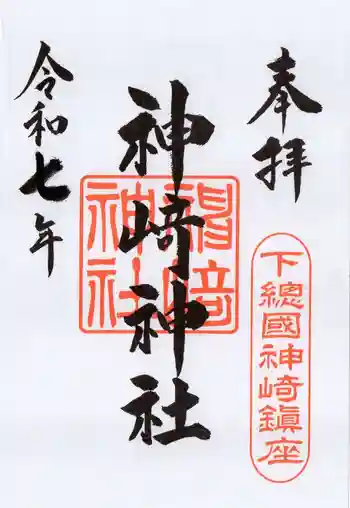 奉拝
下總國神崎鎮座
神崎神社
神﨑神社
令和七年